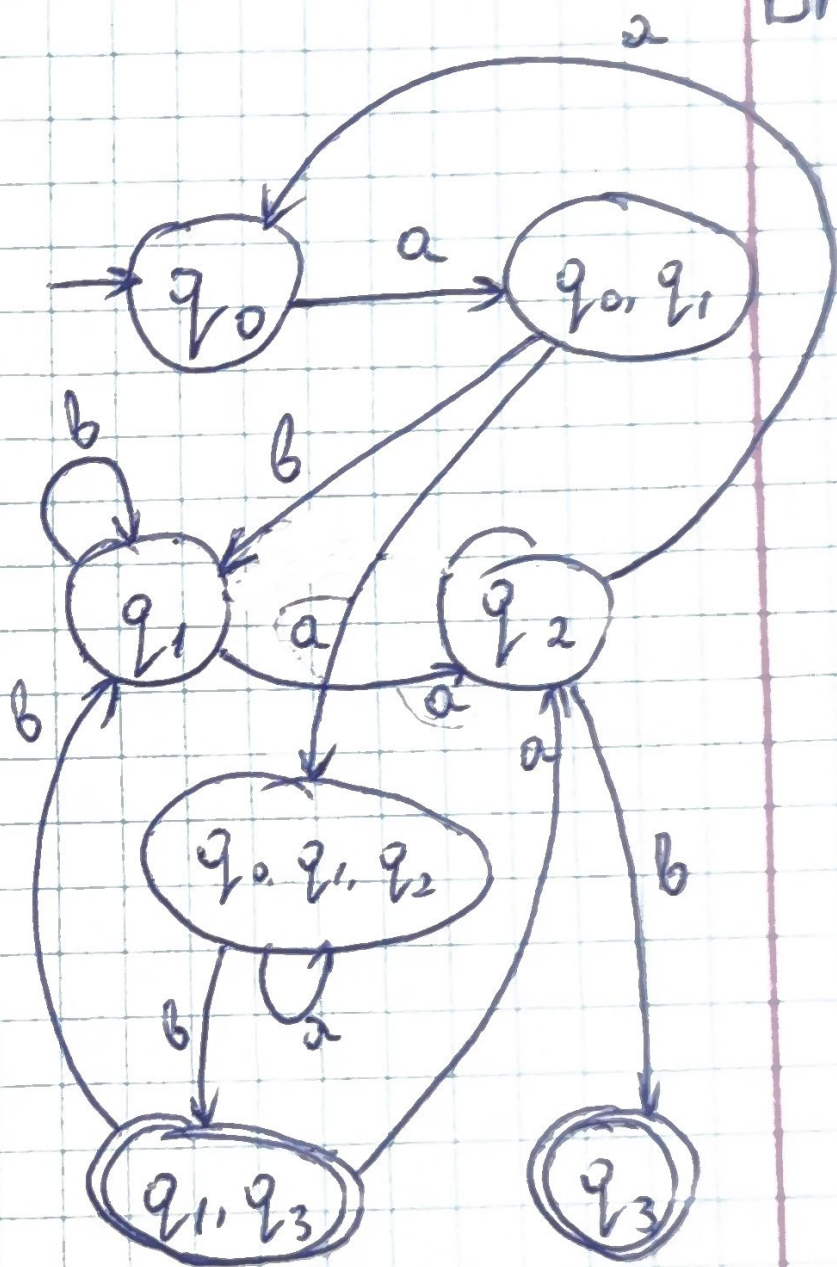 a
q0
a
q0, q1
b
b
q1
a
q2
a
b
a
b
q0, q1, q2
b
a
q1, q3
q3